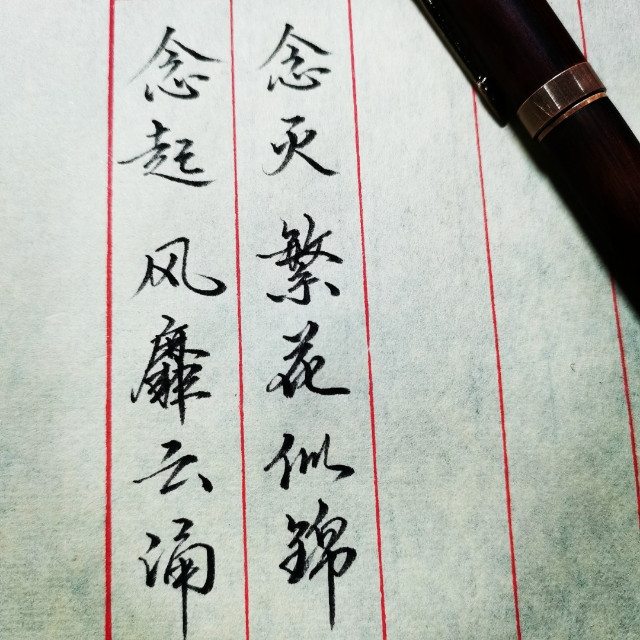 念灭繁花似锦
念起风靡云涌